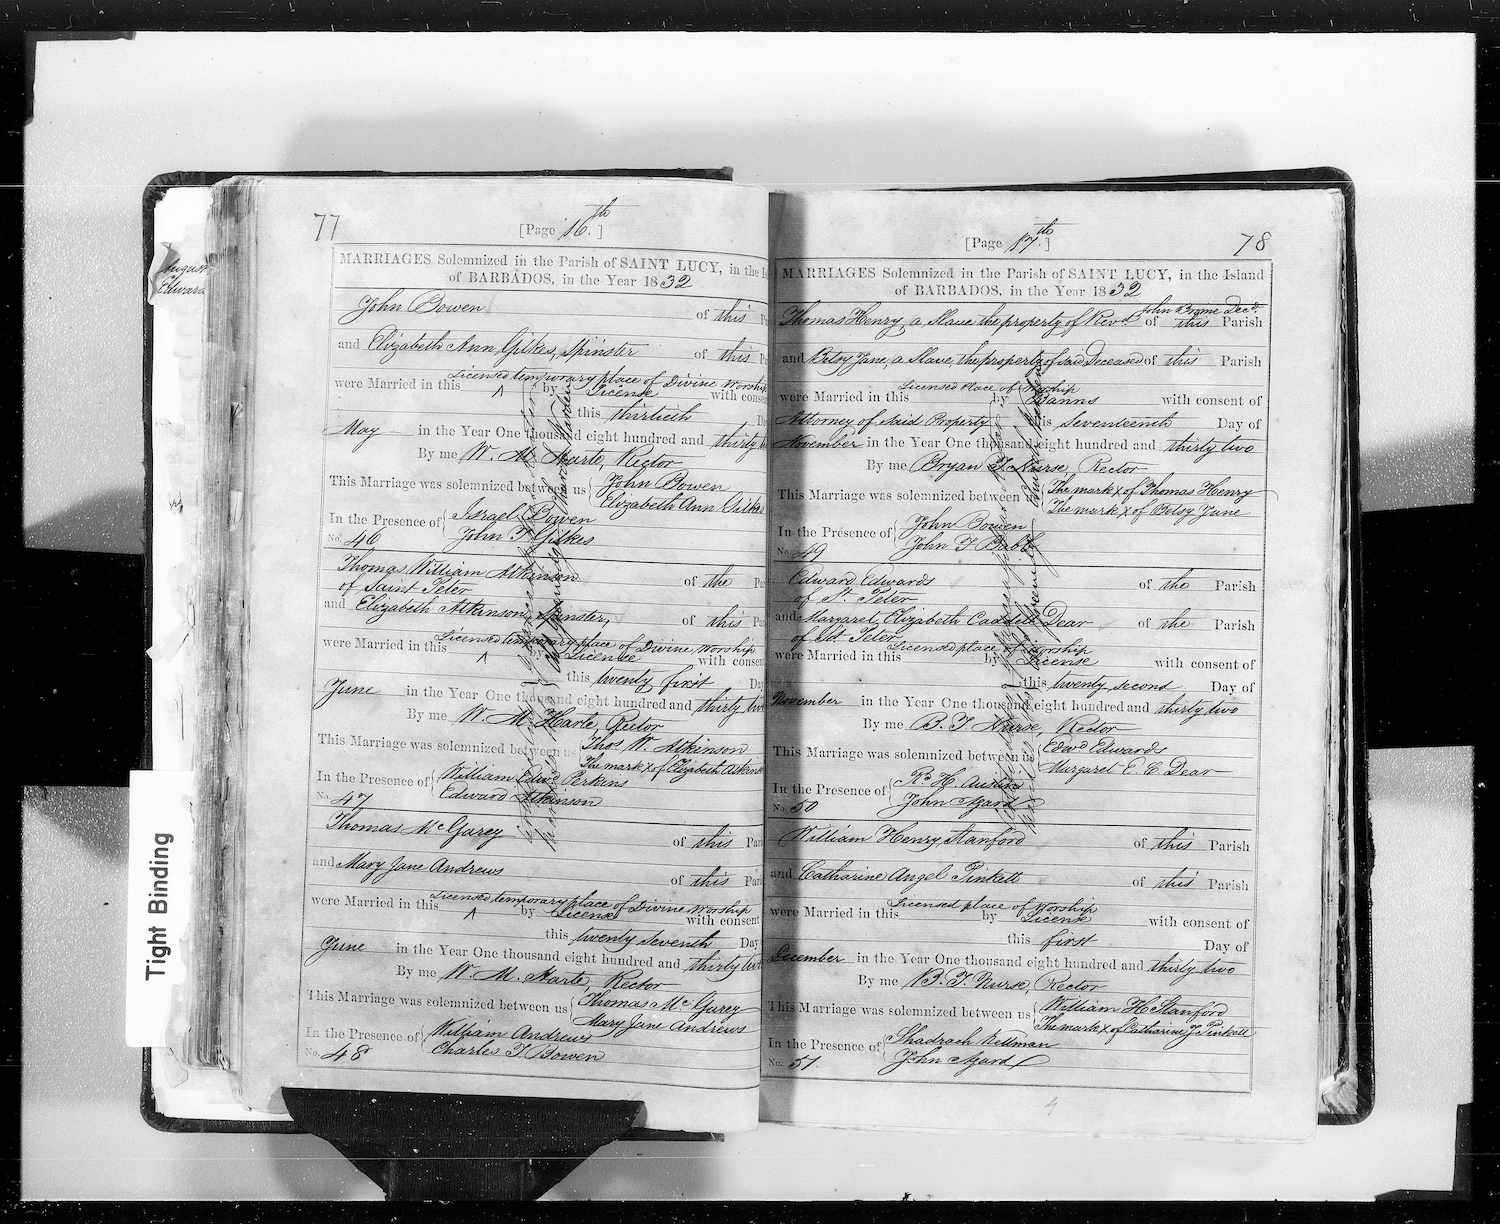 August
Edward
Tight Binding
77
[Page 16.th]
MARRIAGES Solemnized in the Parish of SAINT LUCY, in the
of BARBADOS, in the Year 1832
John Bowen of this
and Elizabeth Ann Gilkes, Spinster of this
Licensed temporary place of Divine Worship
were Married in this ^ by License with consent
this thirtieth
May in the Year One thousand eight hundred and thirty
By me W. M. Harte, Rector
This Marriage was solemnized between us John Bowen
Elizabeth Ann Gilkes
In the Presence of Israel Bowen
John T Gilkes
No. 46
Thomas William Atkinson of the
of Saint Peter
and Elizabeth Atkinson, Spinster, of this
Licensed temporary place of Divine Worship
were Married in this ^ by License with consent
this twenty first Day
June in the Year One thousand eight hundred and thirty two
By me W. M. Harte, Rector
This Marriage was solemnized between us Thos W. Atkinson
The mark x of Elizabeth Atkinson
In the Presence of William Edwd Perkins
Edward Atkinson
No. 47
Thomas Mc Garey of this
and Mary Jane Andrews of this
Licensed temporary place of Divine Worship
were Married in this ^ by License with consent
this twenty seventh Day
June in the Year One thousand eight hundred and thirty two
By me W. M. Harte, Rector
This Marriage was solemnized between us Thomas Mc Garey
Mary Jane Andrews
In the Presence of William Andrews
Charles T Bowen
No. 48
78
[Page 17.th]
MARRIAGES Solemnized in the Parish of SAINT LUCY, in the Island
of BARBADOS, in the Year 1832
John Brome Decd.
Thomas Henry, a Slave the property of Revd of this Parish
and Betsy Jane, a Slave, the property of said Deceased of this Parish
Licensed Place of Worship
were Married in this by Banns with consent of
Attorney of said Property this seventeenth Day of
November in the Year One thousand eight hundred and thirty two
By me Bryan T Nurse, Rector
This Marriage was solemnized between us The mark x of Thomas Henry
The mark x of Betsy Jane
In the Presence of John Bowen
John T Babb
No. 49
Edward Edwards of the Parish
of St. Peter
and Margaret Elizabeth Caddell Dear of the Parish
of St Peter
Licensed place of Worship
were Married in this by License with consent of
this twenty second Day of
November in the Year One thousand eight hundred and thirty two
By me B. T. Nurse, Rector
This Marriage was solemnized between us Edwd Edwards
Margaret E C Dear
In the Presence of H. Austin
John Agard
No. 50
William Henry Stanford of this Parish
and Catharine Angel Pinkett of this Parish
Licensed place of Worship
were Married in this by License with consent of
this first Day of
December in the Year One thousand eight hundred and thirty two
By me B. T. Nurse, Rector
This Marriage was solemnized between us William H Stanford
The mark x of Catharine Pinkett
In the Presence of Shadrach Wellman
John Agard
No. 51